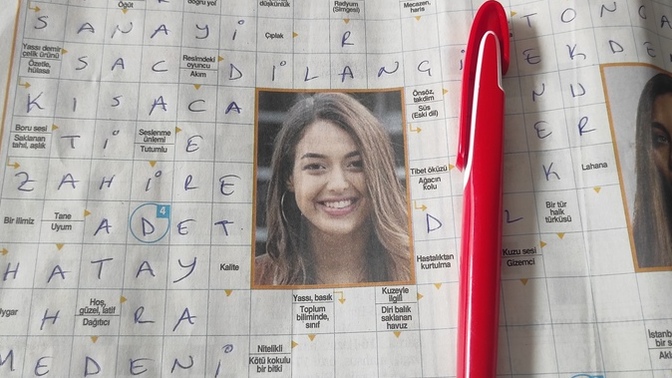 Öğüt
doğru yol
düşkünlük
Radyum
(Simgesi)
Mecazen,
haris
S A N A Y İ
Çıplak
R
T O N G
Yassı demir
çelik ürünü
Özetle,
hülasa
S A C
Resimdeki
oyuncu
Akım
D İ L A N G İ
E K D E
K I S A C A
Önsöz,
takdim
Süs
(Eski dil)
N U
Boru sesi
Saklanan
tahıl, aşlık
T İ
Seslenme
ünlemi
Tutumlu
E
E R
Z A H İ R E
Tibet öküzü
Ağacın
kolu
K
Lahana
Bir ilimiz
Tane
Uyum
A D E T
4
D L
Bir tür
halk
türküsü
H A T A Y
Kalite
Hastalıktan
kurtulma
Kuzu sesi
Gizemci
Hoş,
güzel, latif
Dağıtıcı
Yassı, basık
Toplum
biliminde,
sınıf
Kuzeyle
ilgili
Diri balık
saklanan
havuz
H R A
M E D E N İ
Nitelikli
Kötü kokulu
bir bitki